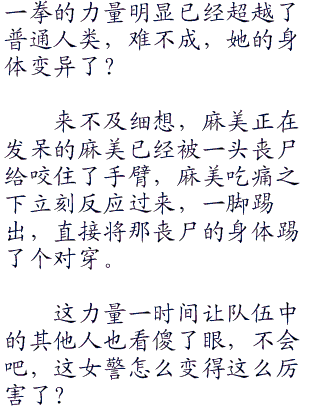 一拳的力量明显已经超越了
普通人类，难不成，她的身
体变异了？
来不及细想，麻美正在
发呆的麻美已经被一头丧尸
给咬住了手臂，麻美吃痛之
下立刻反应过来，一脚踢
出，直接将那丧尸的身体踢
了个对穿。
这力量一时间让队伍中
的其他人也看傻了眼，不会
吧，这女警怎么变得这么厉
害了？